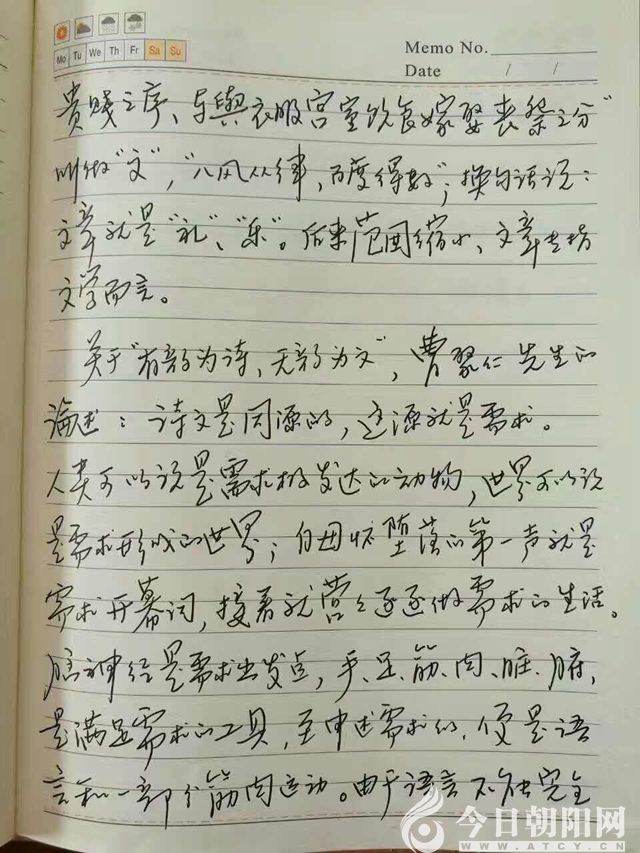 Mo Tu We Th Fr Sa Su
Memo No.
Date / /
贵贱之序、车舆衣服宫室饮食嫁娶丧祭之分”
叫做“文”，“八风从律，百度得数”；换句话说：
文章就是“礼”、“乐”。后来范围缩小、文章专指
文学而言。
关于“有韵为诗，无韵为文”，曹聚仁先生的
论述：诗文是同源的，这源就是需求。
人类可以说是需求极发达的动物，世界可以说
是需求形成的世界；自母怀堕落的第一声就是
需求开幕词，接着就营营逐逐做需求的生活。
脑神经是需求出发点，手、足、筋、肉、脏、腑，
是满足需求的工具，至申述需求的，便是语
言和一部分筋肉运动。由于语言不能完全
今日朝阳网
WWW.ATCY.CN